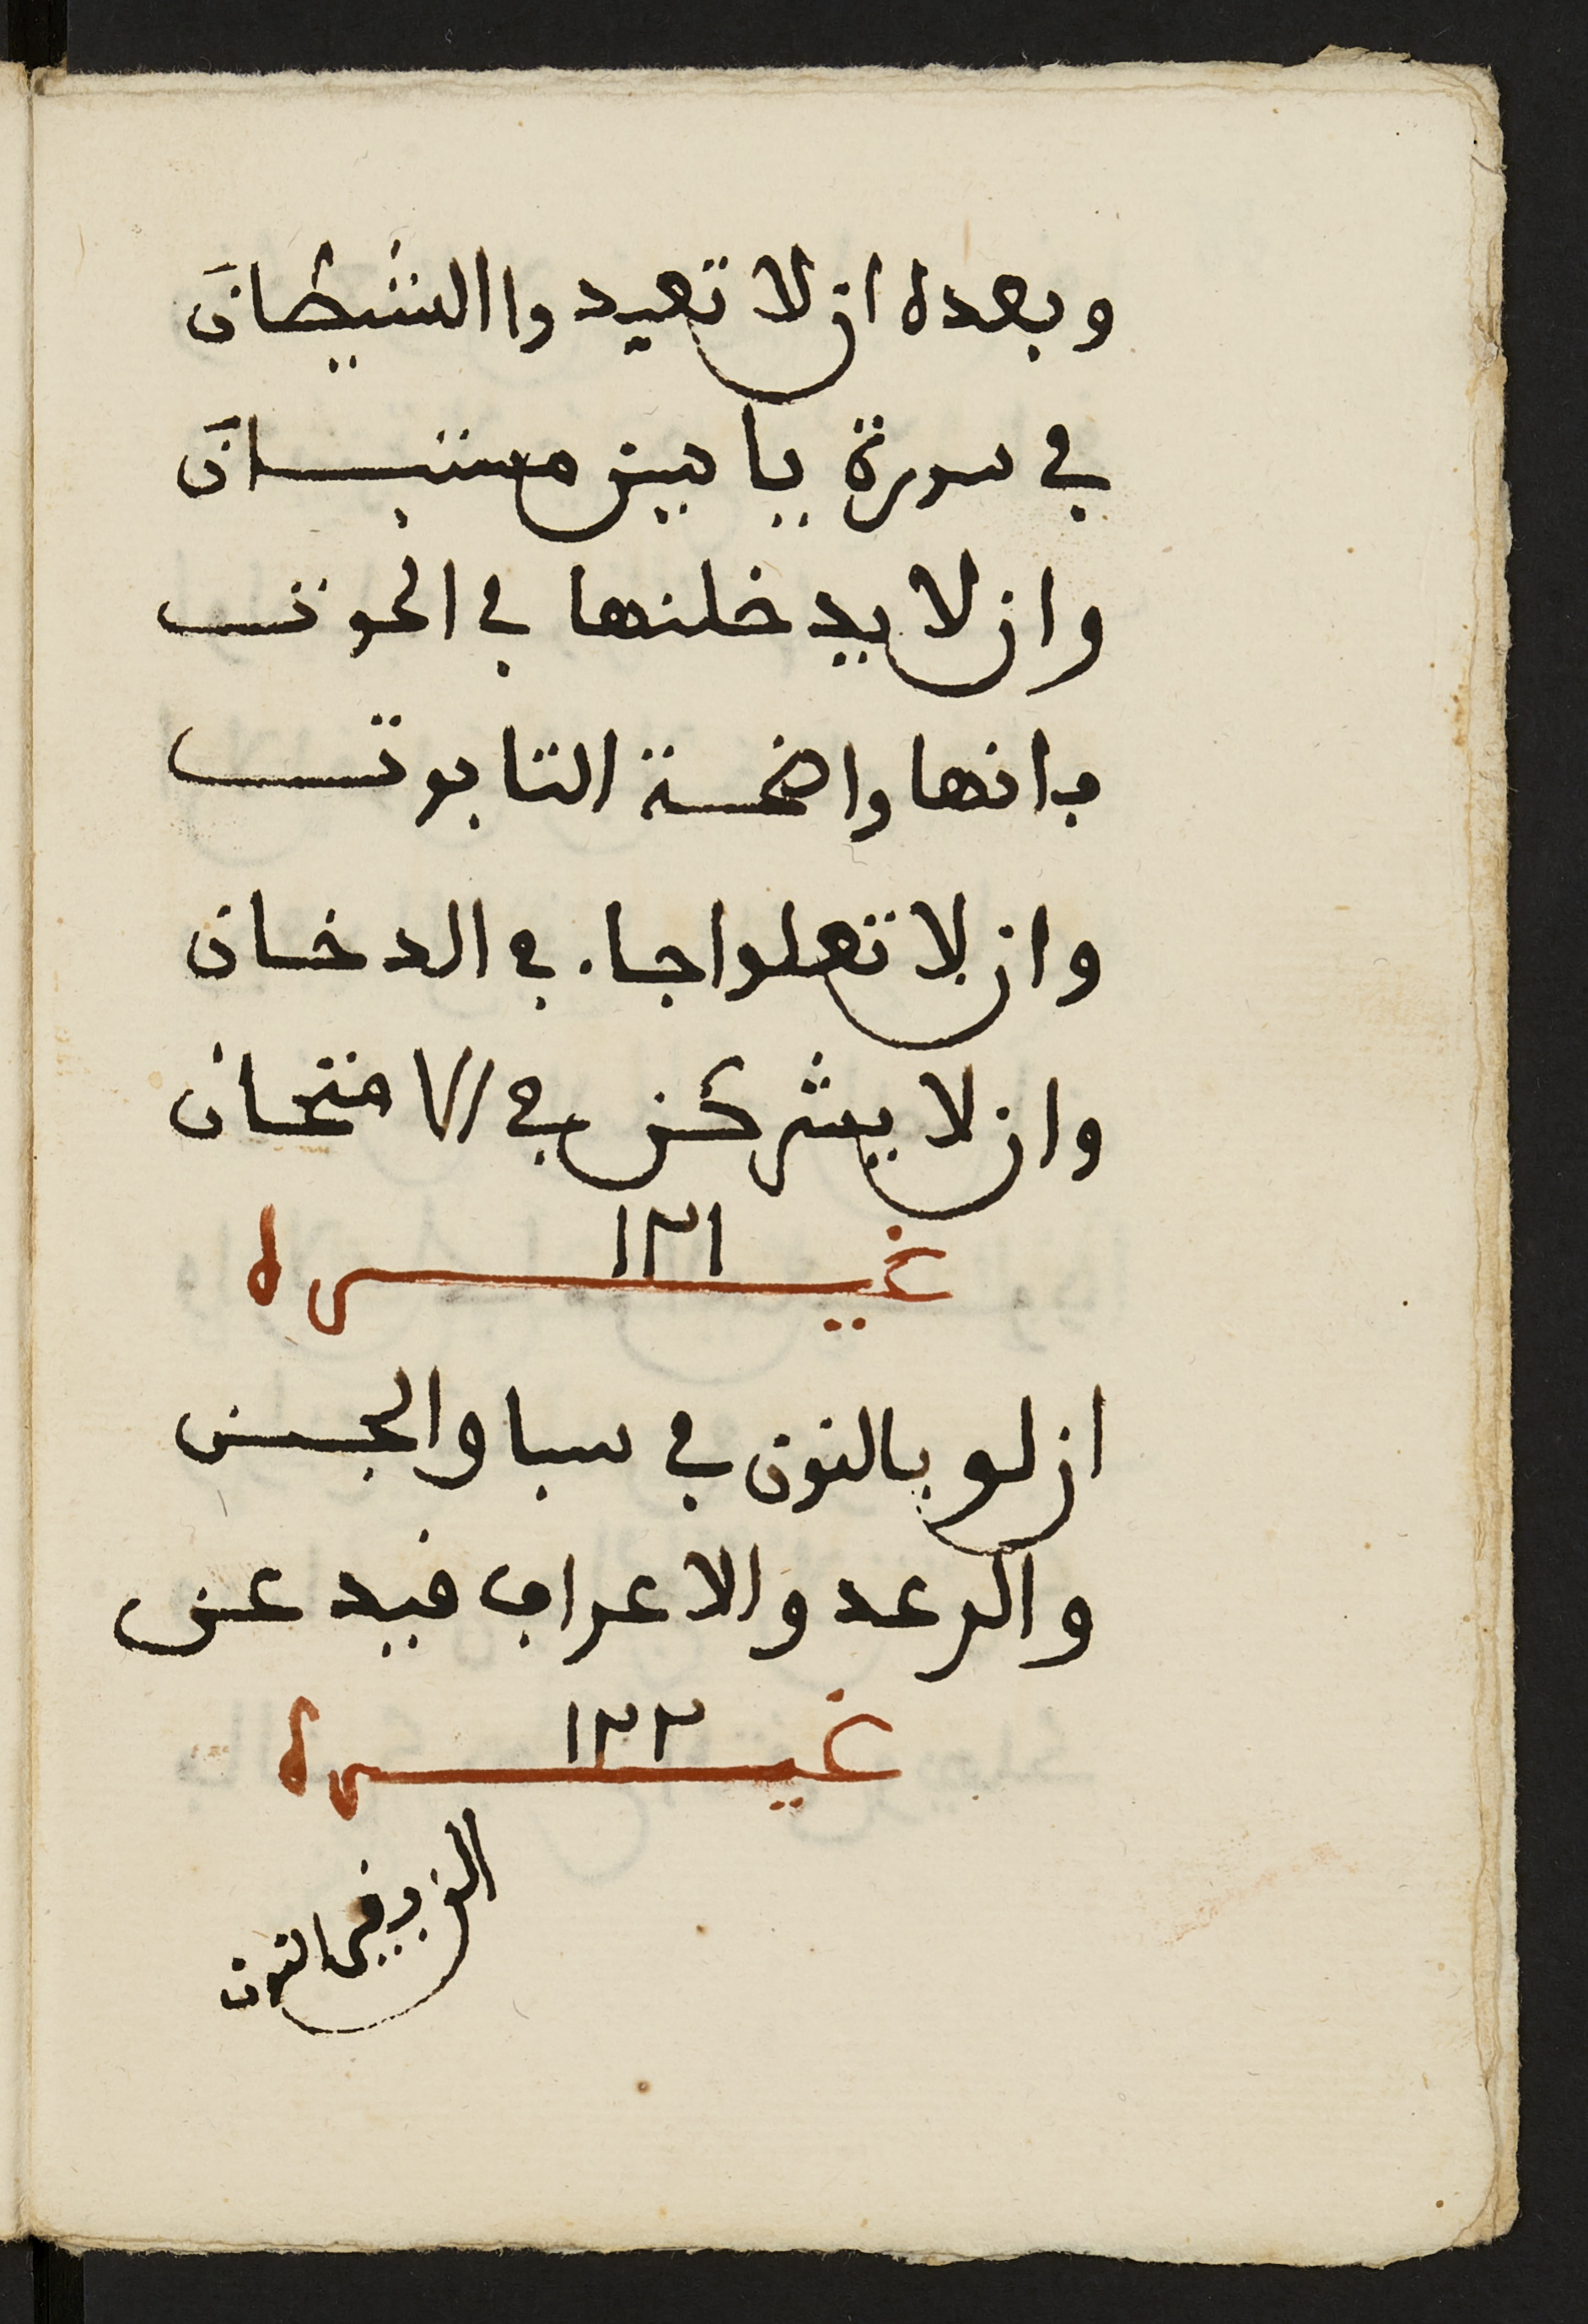 وبعده ان لا تعبدوا الشيطان
في سورة ياسين مستبان
وان لا يدخلنها في الحوت
بانها واضحة التابوت
وان لا تعلوا جاء في الدخان
وان لا يشركن في الامتحان
غيره ١٢١
ان لو بالنون في سبا والجن
والرعد والاعراف فيد عن
غيره ١٢٢
النون